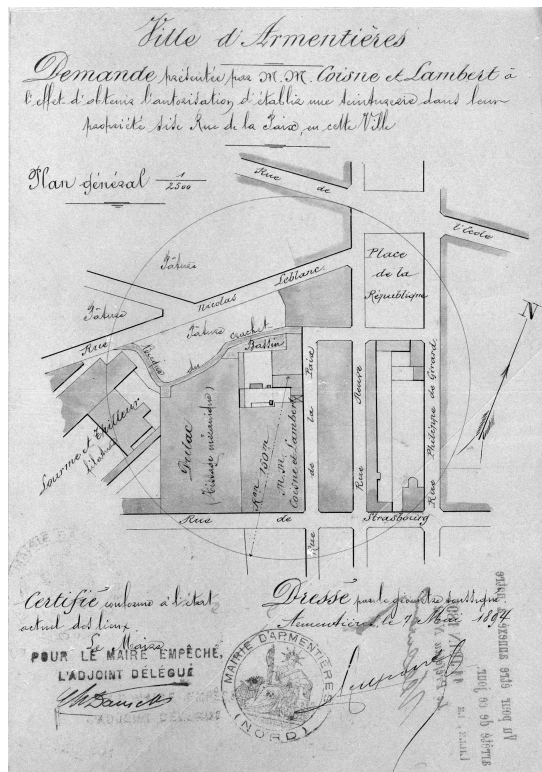 Ville d'Armentières
Demande présentée par M.M. Coisne et Lambert à
l'effet d'obtenir l'autorisation d'établir une teinturerie dans leur
propriété sise Rue de la Paix, en cette Ville
Plan général 1/2500
Rue de
l'école
Pâture
Place
de la
République
Rue Nicolas Leblanc
Pâture
Pâture
crachet
du
Bassin
N
Lourme et
filature
Prelac
(Tissage mécanique)
Ron 150m
M.M.
Coisne et Lambert
Rue de la Paix
Rue Neuve
Rue Philippe de Girard
Rue de Strasbourg
Certifié conforme à l'état
actuel des lieux
Le Maire
POUR LE MAIRE EMPÊCHÉ,
L'ADJOINT DÉLÉGUÉ
Dressé par le géomètre soussigné
Armentières, le 7 Mai 1894
MAIRIE D'ARMENTIÈRES
(NORD)
Vu pour être annexé à notre